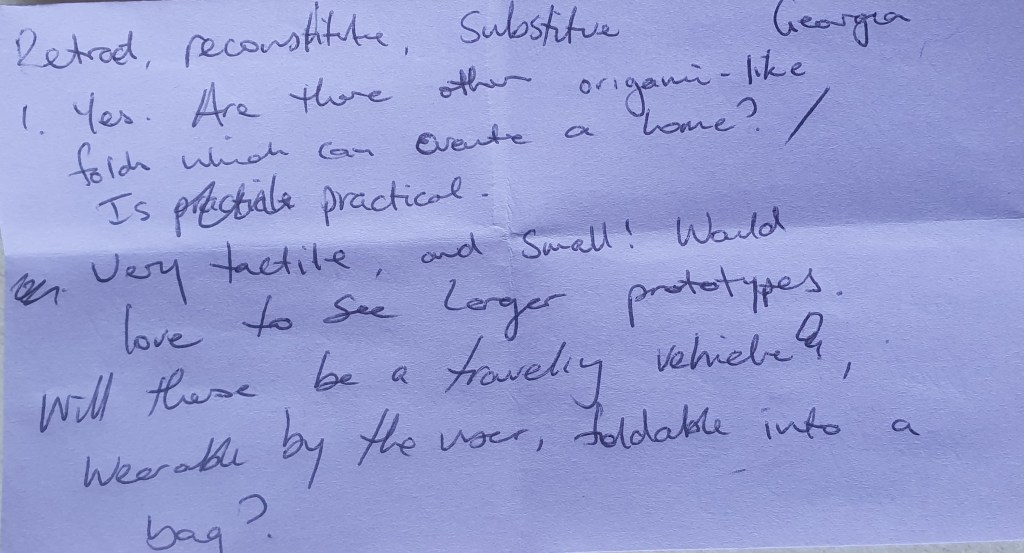 Retrad, reconstitute, Substitue Georgia
1. Yes. Are there other origami-like
folds which can create a home? /
Is practical.
Very tactile, and small! Would
love to see larger prototypes.
Will there be a traveling vehicle,
wearable by the user, foldable into a
bag?